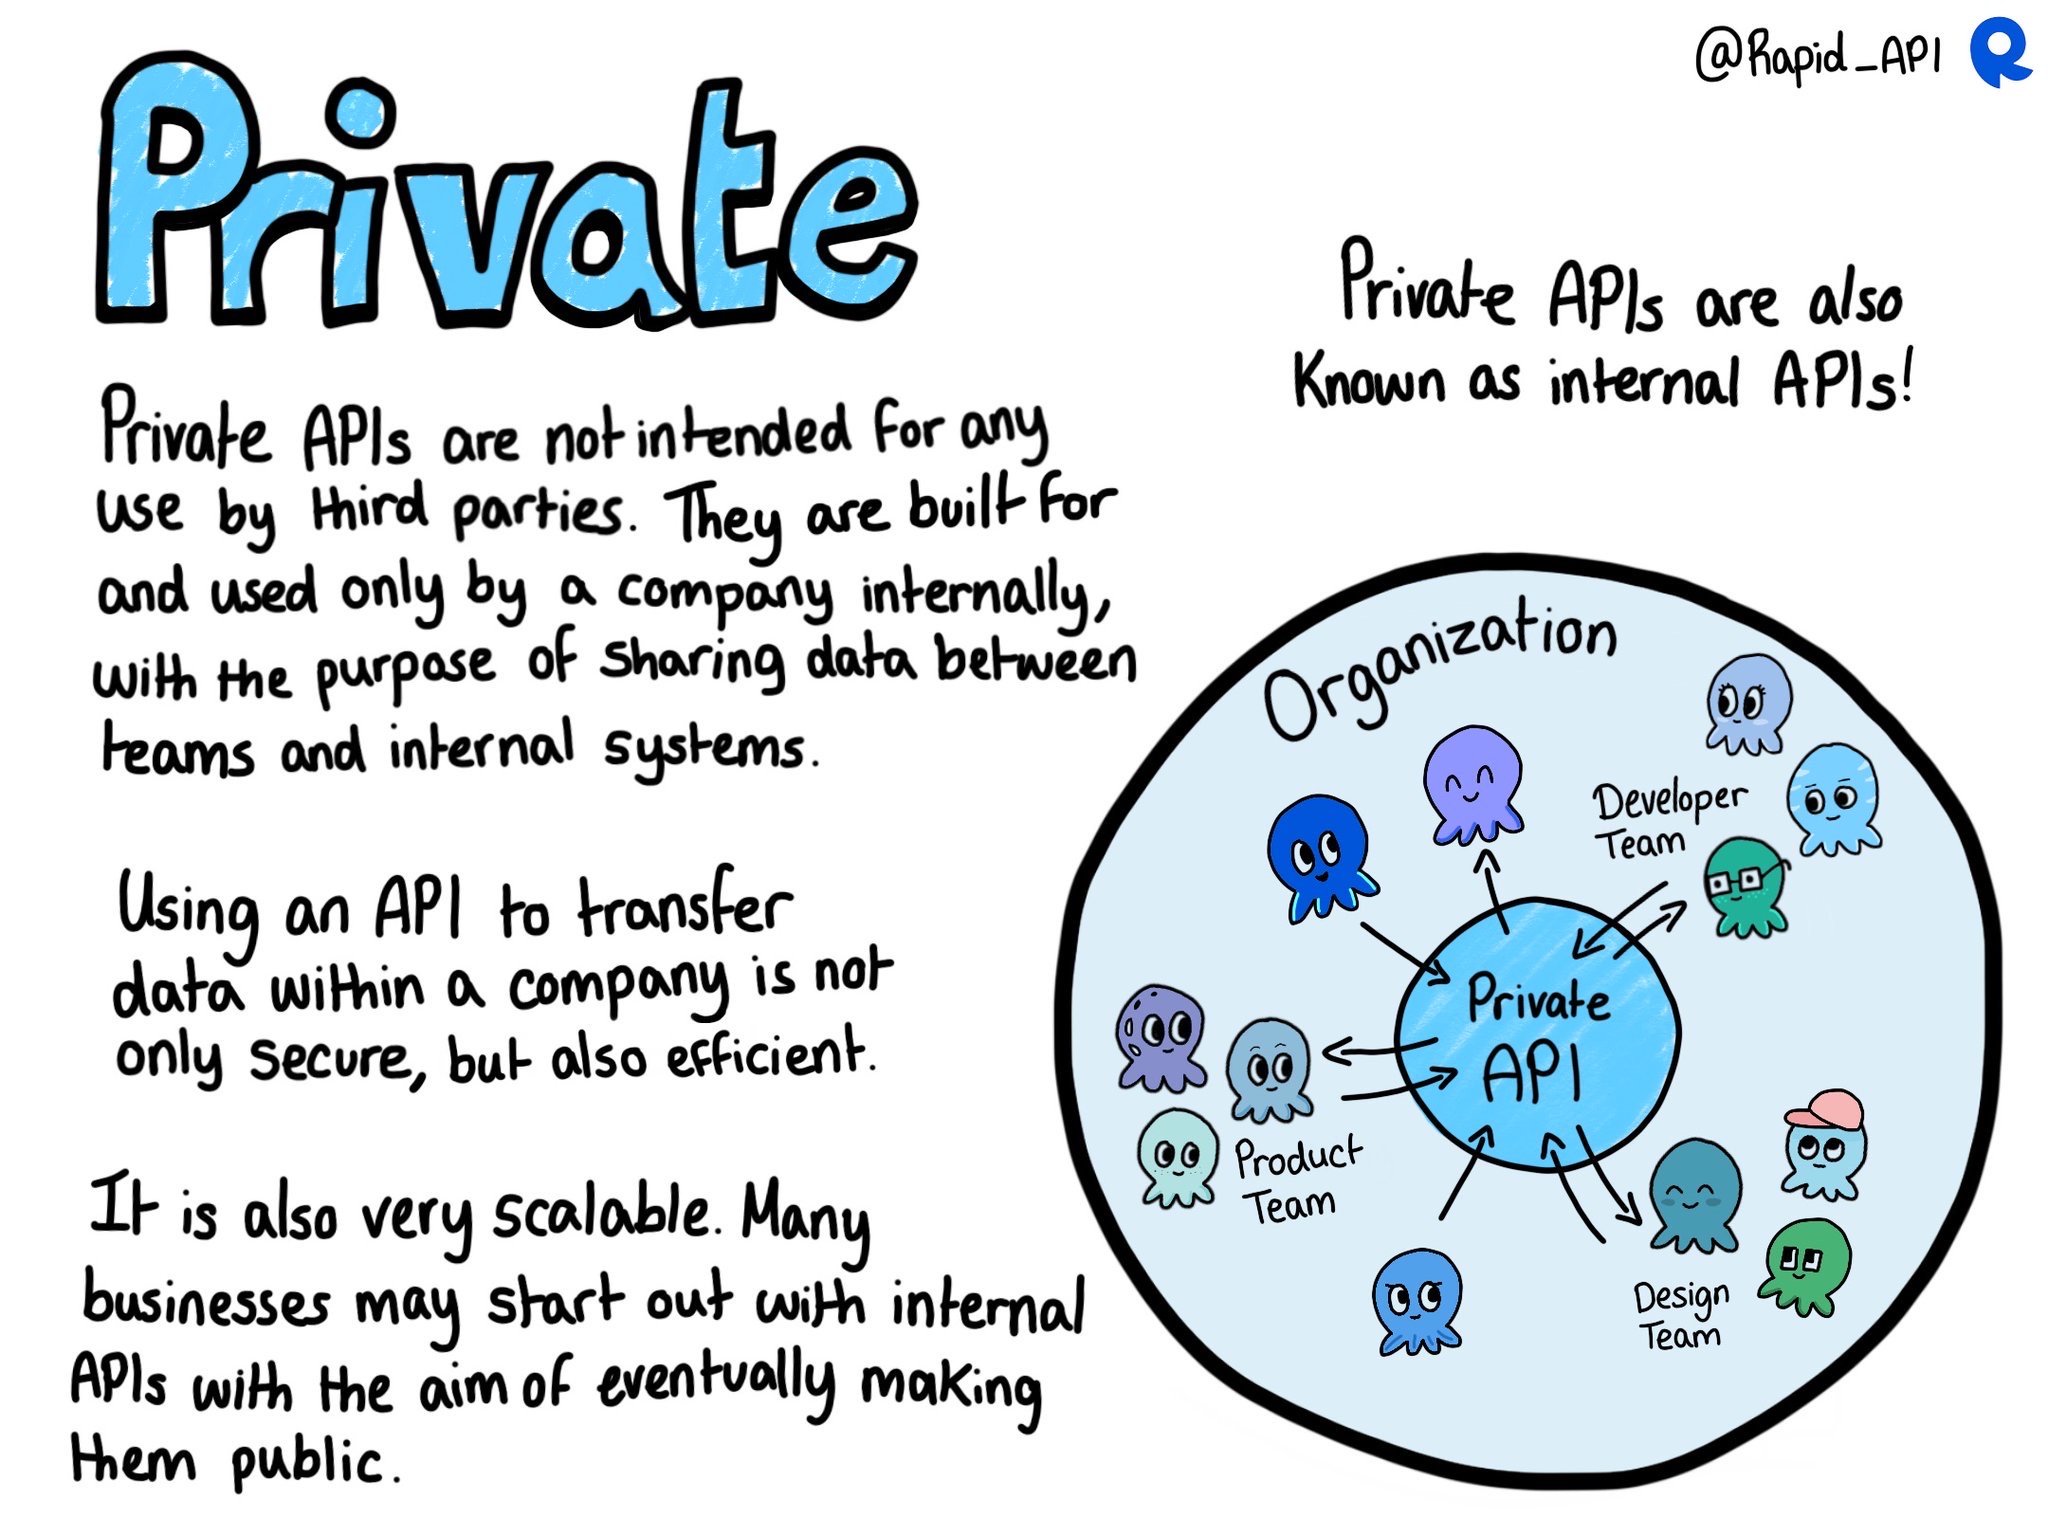 @Rapid_API
Private
Private APIs are also
Known as internal APIs!
Private APIs are not intended for any
use by third parties. They are built for
and used only by a company internally,
with the purpose of sharing data between
teams and internal systems.
Using an API to transfer
data within a company is not
only secure, but also efficient.
It is also very scalable. Many
businesses may start out with internal
APIs with the aim of eventually making
them public.
Organization
Developer
Team
Private
API
Product
Team
Design
Team